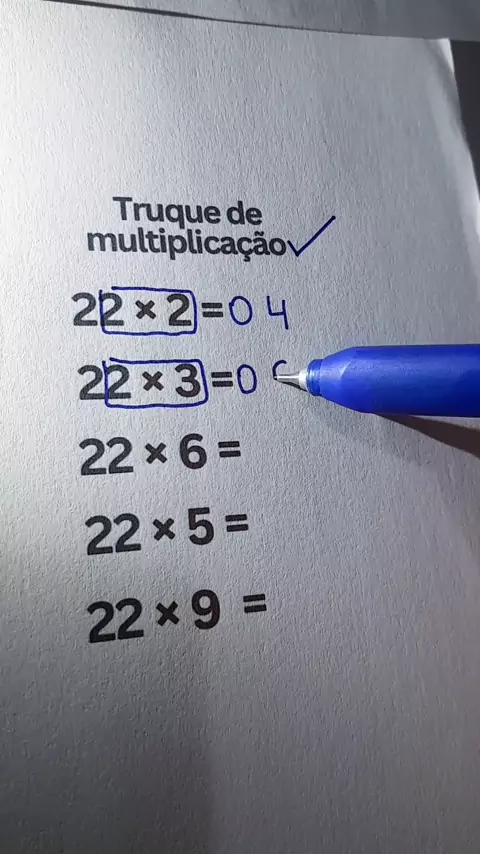 Truque de
multiplicação✓
22 × 2 = 0 4
22 × 3 = 0
22 × 6 =
22 × 5 =
22 × 9 =